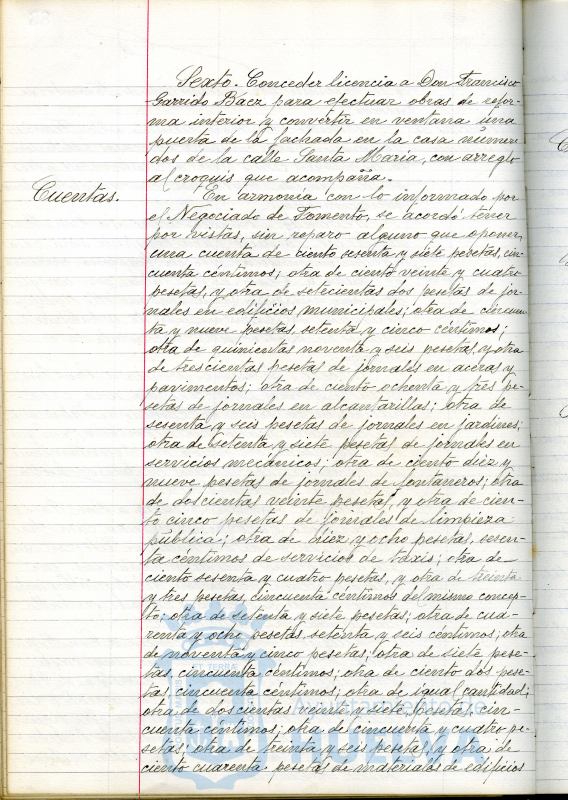 Sexto. Conceder licencia a Don Francisco
Garrido Baez para efectuar obras de refor-
ma interior y convertir en ventana una
puerta de la fachada en la casa número
dos de la calle Santa María, con arreglo
al croquis que acompaña.
Cuentas.
En armonía con lo informado por
el Negociado de Fomento, se acordó tener
por vistas, sin reparo alguno que oponer,
una cuenta de ciento sesenta y siete pesetas, cin-
cuenta céntimos; otra de ciento veinte y cuatro
pesetas, y otra de setecientas dos pesetas de jor-
nales en edificios municipales; otra de cincuen-
ta y nueve pesetas, setenta y cinco céntimos;
otra de quinientas noventa y seis pesetas, y otra
de trescientas pesetas de jornales en aceras y
pavimentos; otra de ciento ochenta y tres pe-
setas de jornales en alcantarillas; otra de
sesenta y seis pesetas de jornales en jardines;
otra de setenta y siete pesetas de jornales en
servicios mecánicos; otra de ciento diez y
nueve pesetas de jornales de fontaneros; otra
de doscientas veinte pesetas, y otra de cien-
to cinco pesetas de jornales de limpieza
pública; otra de diez y ocho pesetas, sesen-
ta céntimos de servicios de taxis; otra de
ciento sesenta y cuatro pesetas, y otra de treinta
y tres pesetas, cincuenta céntimos del mismo concep-
to; otra de setenta y siete pesetas; otra de cua-
renta y ocho pesetas, setenta y seis céntimos; otra
de noventa y cinco pesetas; otra de siete pese-
tas, cincuenta céntimos; otra de ciento dos pese-
tas, cincuenta céntimos; otra de igual cantidad;
otra de doscientas veinte y siete pesetas, cin-
cuenta céntimos; otra de cincuenta y cuatro pe-
setas; otra de treinta y seis pesetas, y otra de
ciento cuarenta pesetas de materiales de edificios
Ayuntamiento de
HUELVA